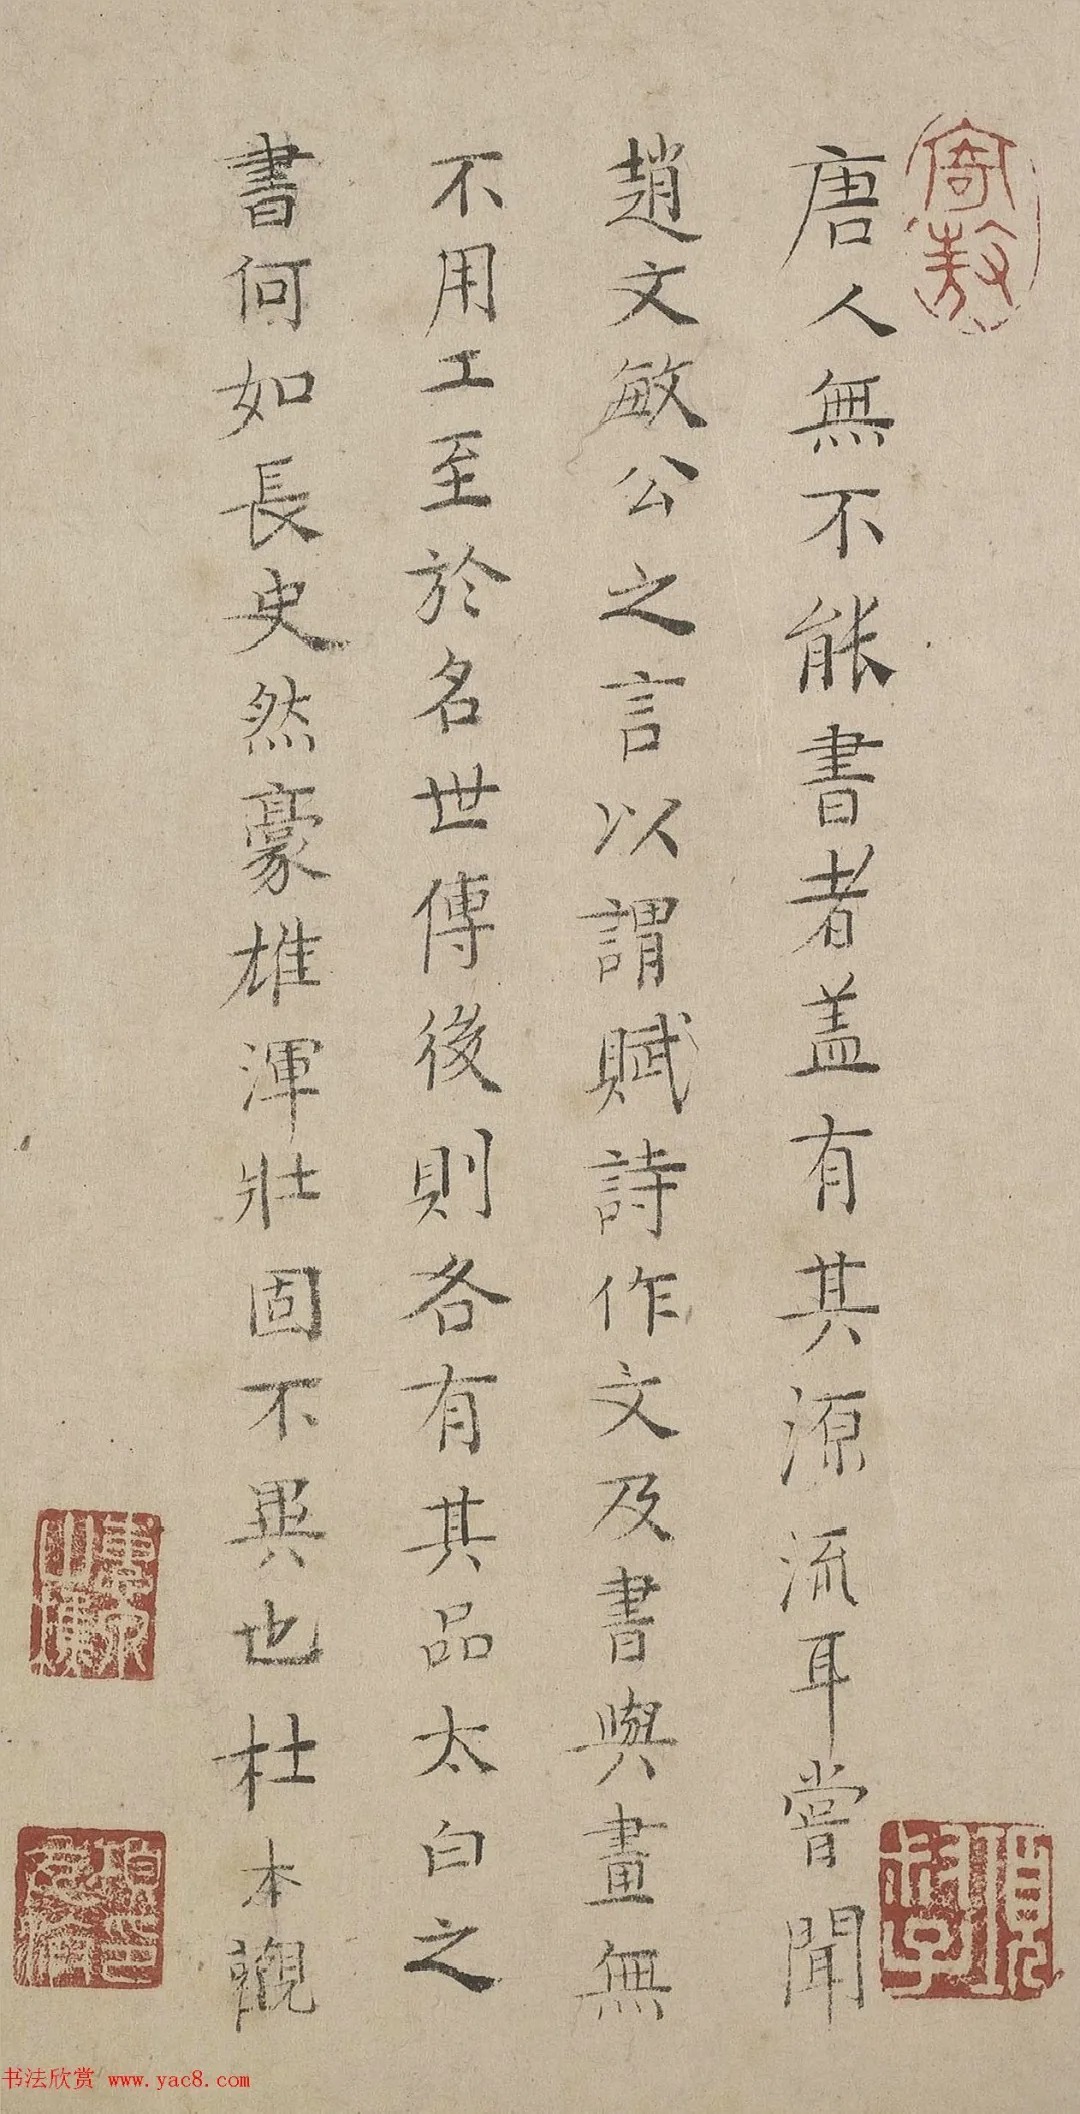 唐人無不能書者盖有其源流耳嘗聞
趙文敏公之言以謂賦詩作文及書與畫無
不用工至於名世傳後則各有其品太白之
書何如長史然豪雄渾壯固不異也杜本觀
寄敖
书法欣赏 www.yac8.com